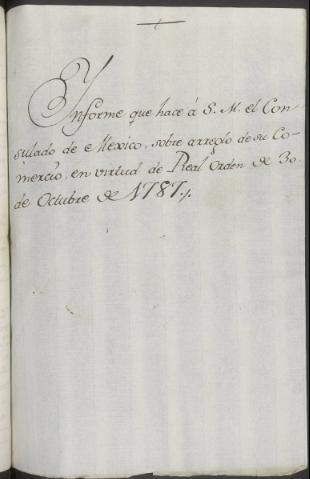 Ynforme que hace á S. M. el Con-
sulado de Mexico, sobre arreglo de su Co-
mercio, en virtud de Real Orden de 30.
de Octubre de 1787.